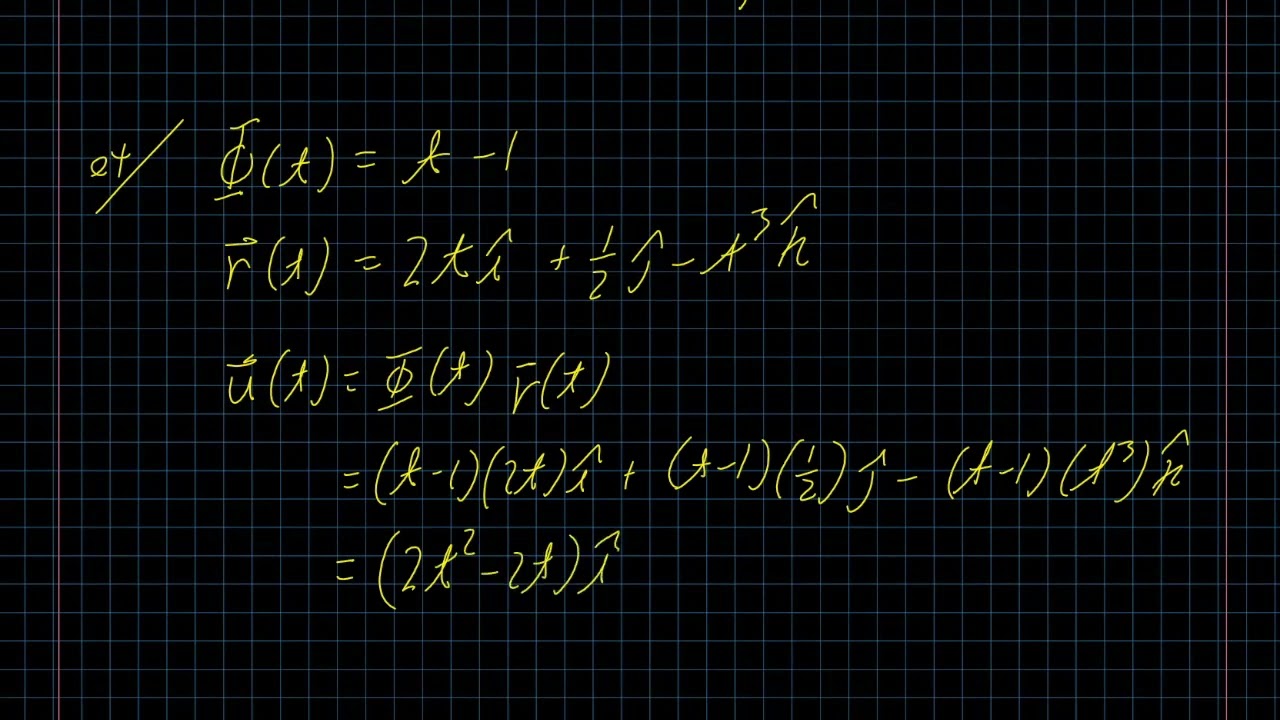 ex/ Φ(t) = t - 1
r⃗(t) = 2t î + 1/2 ĵ - t³ k̂
u⃗(t) = Φ(t) r⃗(t)
= (t-1)(2t) î + (t-1)(1/2) ĵ - (t-1)(t³) k̂
= (2t² - 2t) î